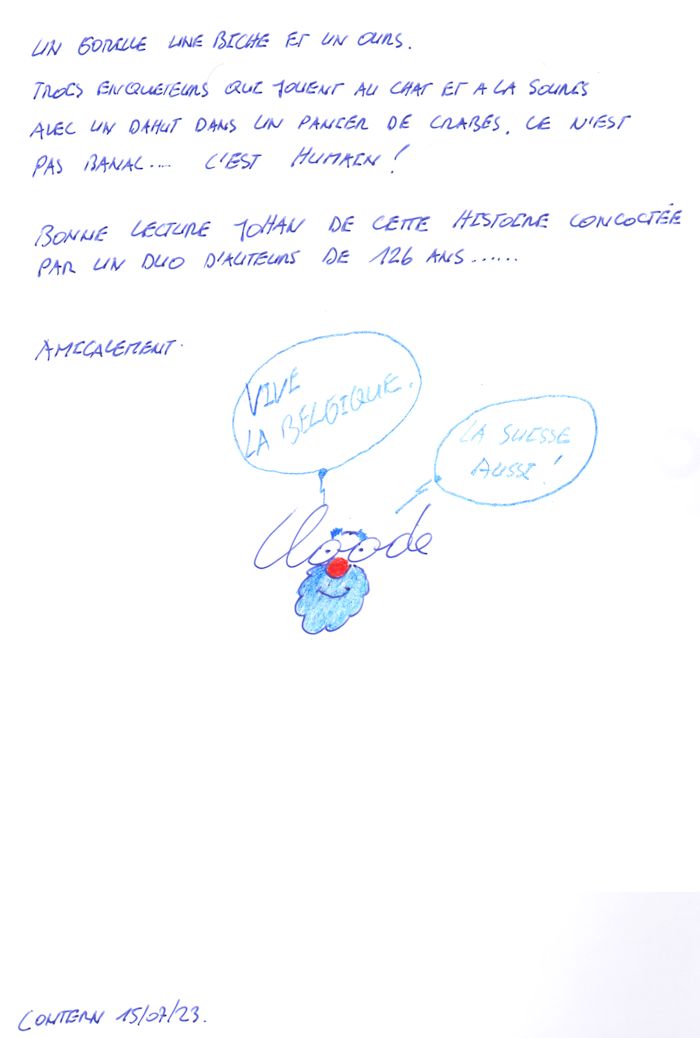 UN GORILLE UNE BICHE ET UN OURS.
TROIS ENQUETEURS QUI JOUENT AU CHAT ET A LA SOURIS
AVEC UN DAHUT DANS UN PANIER DE CRABES. CE N'EST
PAS BANAL.... C'EST HUMAIN !
BONNE LECTURE JOHAN DE CETTE HISTOIRE CONCOCTÉE
PAR UN DUO D'AUTEURS DE 126 ANS......
AMICALEMENT.
VIVE
LA BELGIQUE.
LA SUISSE
AUSSI !
Cloode
CONTERN 15/07/23.